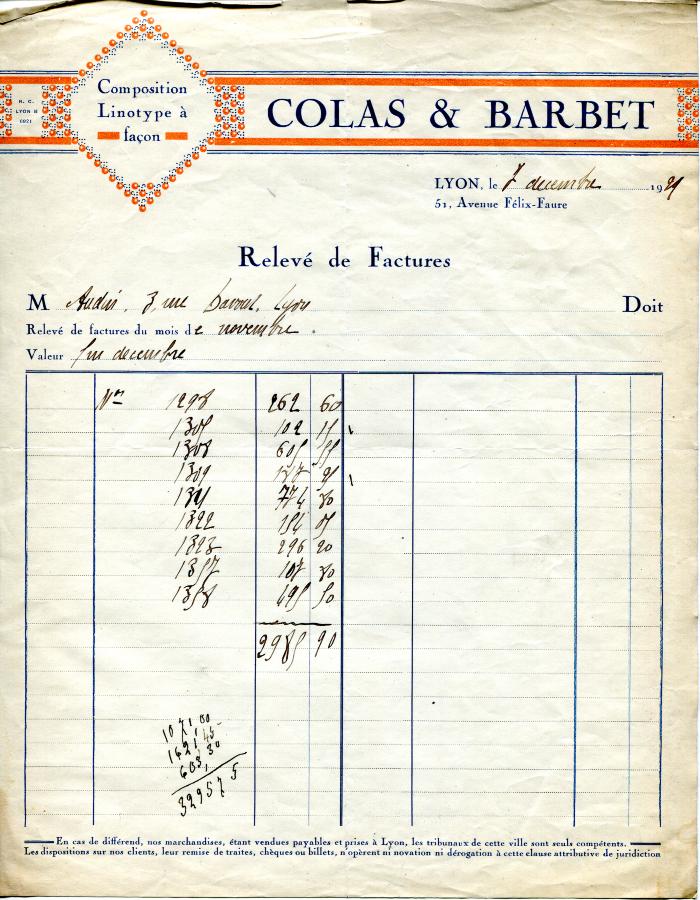 R. C.
LYON B
6821
Composition
Linotype à
façon
COLAS & BARBET
LYON, le 7 decembre 19
51, Avenue Félix-Faure
Relevé de Factures
M Audin. 3, rue Davout. Lyon
Doit
Relevé de factures du mois de novembre.
Valeur fin decembre
Nos 1298 262 60
1305 102 15
1308 605 55
1309
774 80
1322
1323 296 20
1357 107 80
1358 495 50
2985 90
En cas de différend, nos marchandises, étant vendues payables et prises à Lyon, les tribunaux de cette ville sont seuls compétents.
Les dispositions sur nos clients, leur remise de traites, chèques ou billets, n'opèrent ni novation ni dérogation à cette clause attributive de juridiction